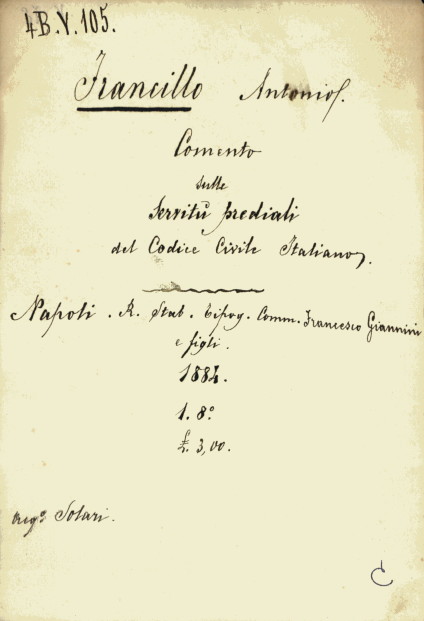 4B.V.105.
Francillo Antonio.
Comento
sulle
Servitù prediali
del Codice Civile Italiano.
Napoli. R. Stab. Tipog. Comm. Francesco Giannini
e figli.
1884.
1. 8°
£. 3,00.
Solari.
C